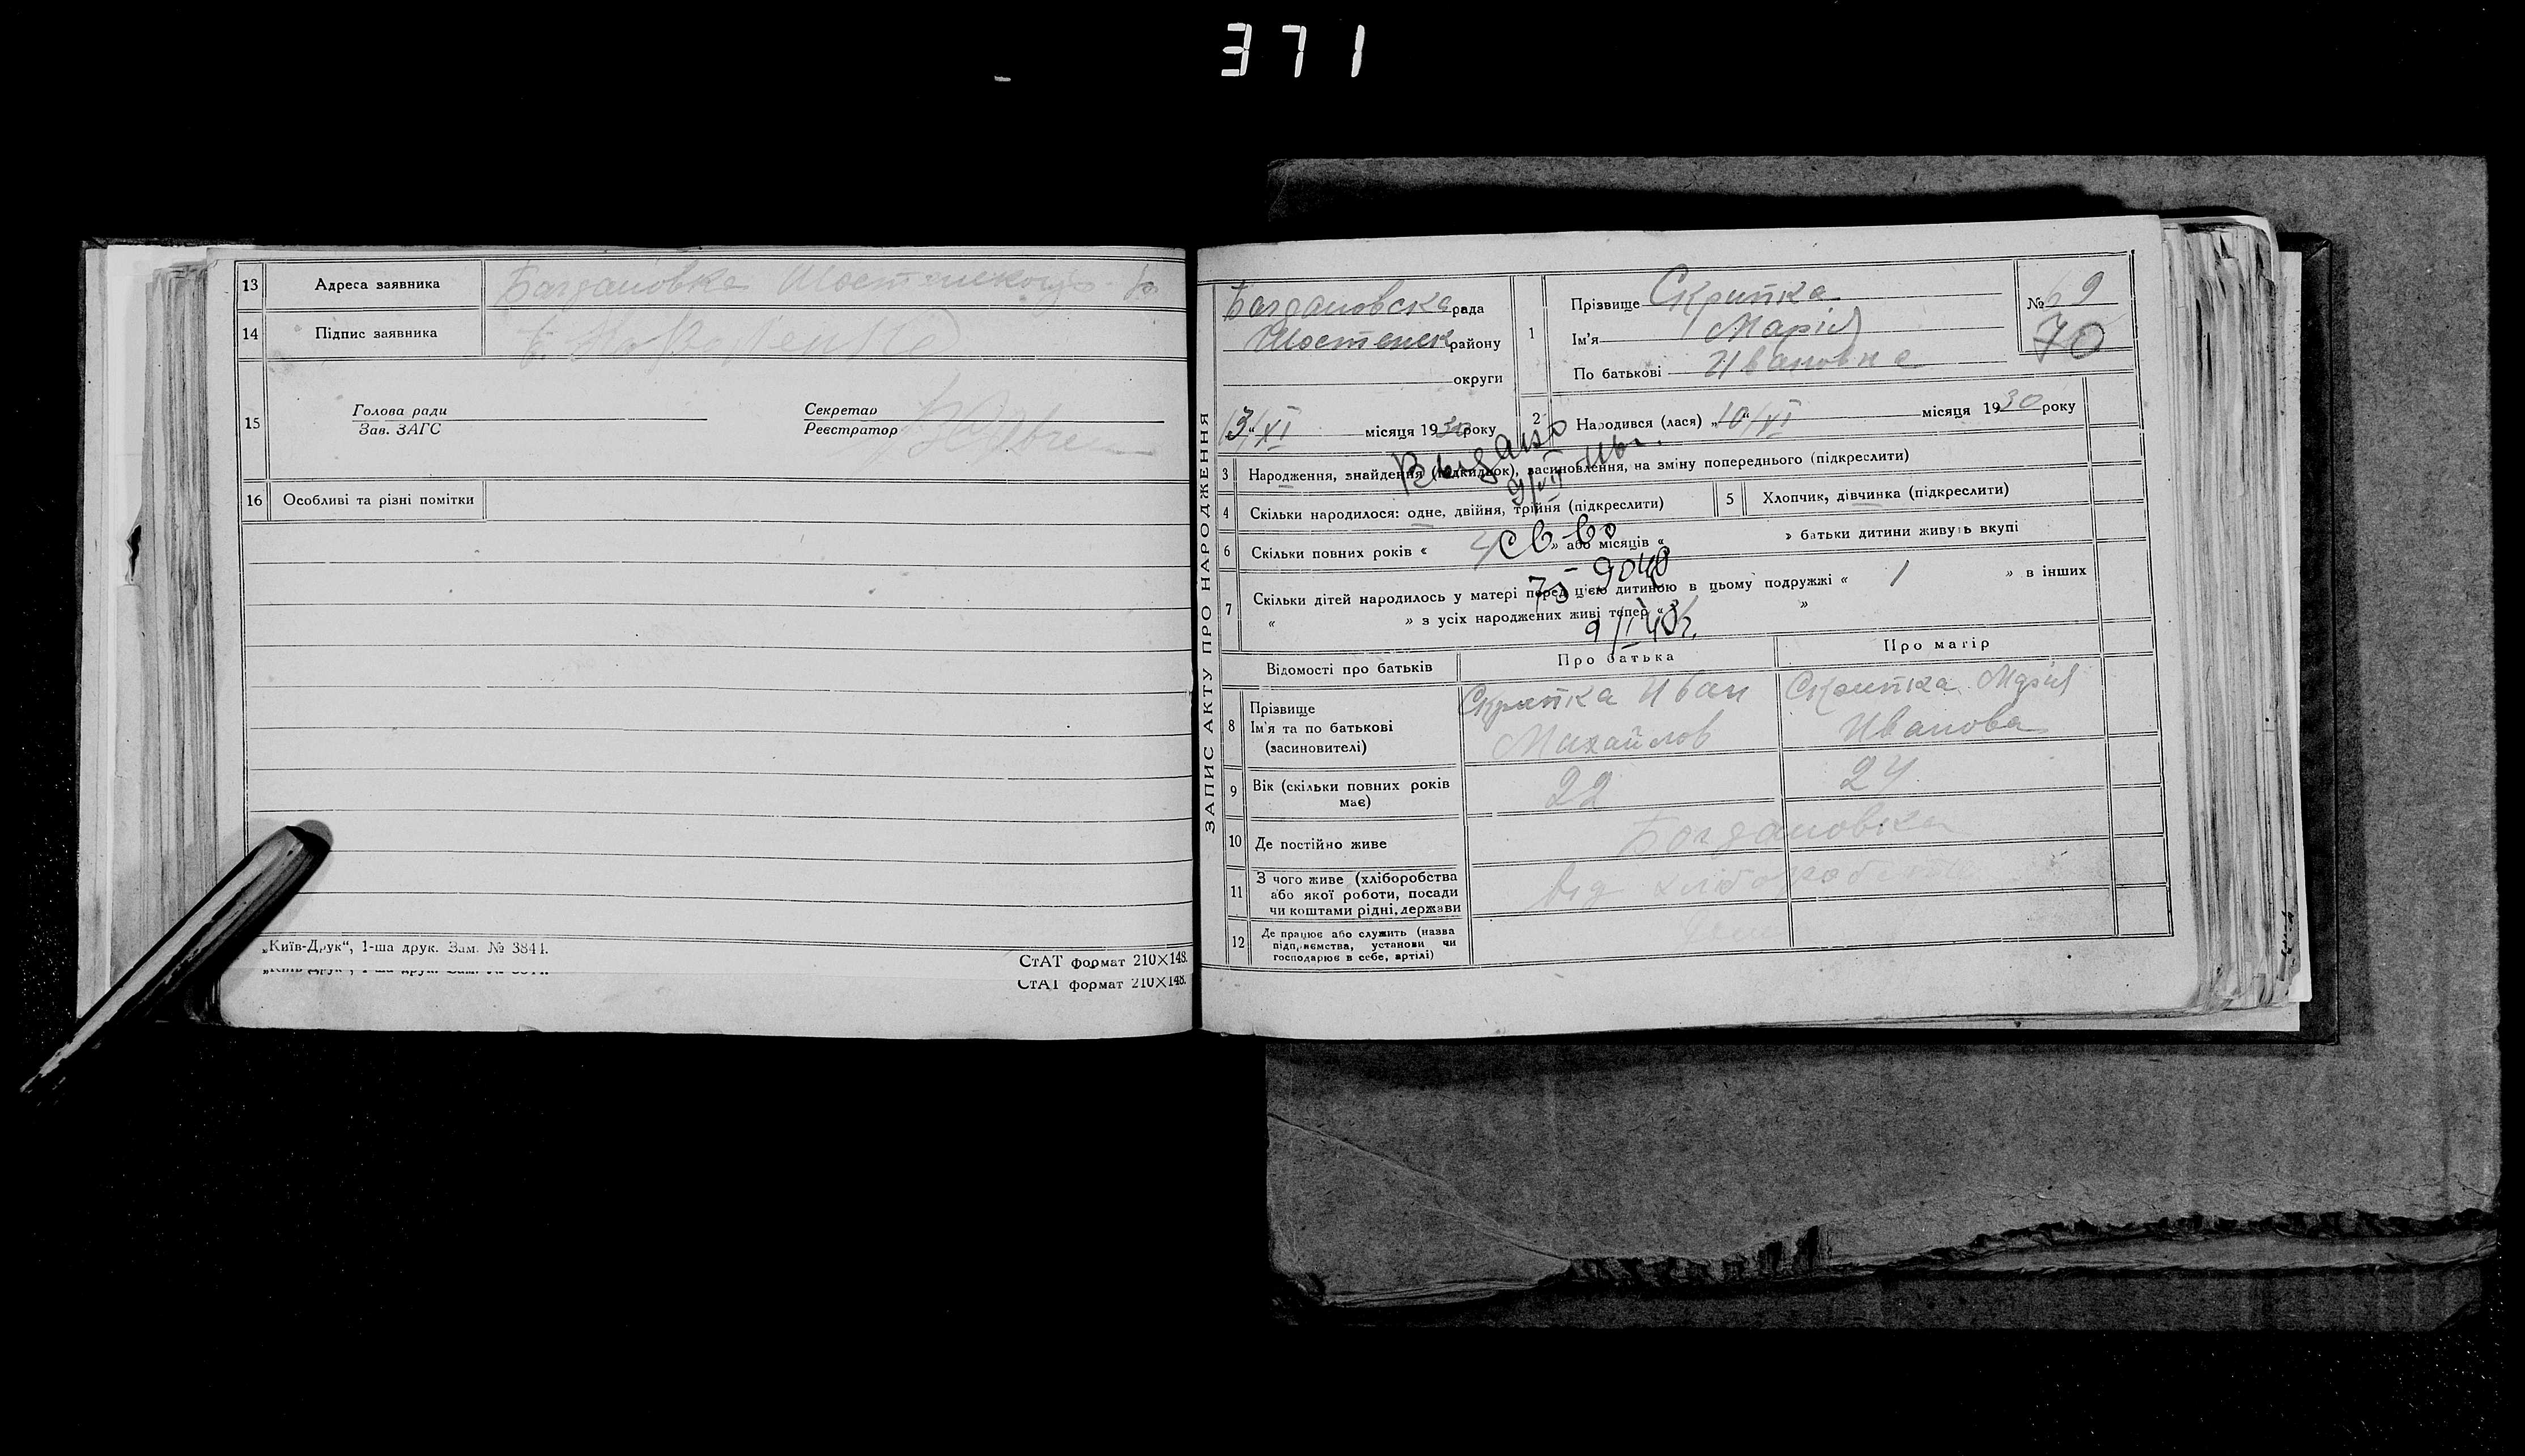 371
13 Адреса заявника Богдановка Шостенского
14 Підпис заявника
15 Голова ради
Зав. ЗАГС
Секретар
Реєстратор
16 Особливі та різні помітки
„Київ-Друк“, 1-ша друк. Зам. № 3844.
СтАТ формат 210×148.
СтАТ формат 210×148.
ЗАПИС АКТУ ПРО НАРОДЖЕННЯ
Богдановска рада
Шостенск району
округи
13/XI місяця 1930 року
1 Прізвище Скрипка
Ім'я Марія
По батькові Ивановна
№ 69
70
2 Народився (лася) „10/XI місяця 1930 року
Выдано
3 Народження, знайдення (підкидьок), засиновлення, на зміну попереднього (підкреслити)
9/VII
4 Скільки народилося: одне, двійня, трійня (підкреслити)
5 Хлопчик, дівчинка (підкреслити)
св-во
6 Скільки повних років « 4 » або місяців « » батьки дитини живуть вкупі
7 Скільки дітей народилось у матері перед цією дитиною в цьому подружжі « 1 » в інших
« » з усіх народжених живі тепер « »
Відомості про батьків
Про батька
Про матір
8 Прізвище
Ім'я та по батькові
(засиновителі)
Скрипка Иван
Михайлов
Скрипка Марія
Иванова
9 Вік (скільки повних років
має)
22
24
10 Де постійно живе
Богдановка
11 З чого живе (хліборобства
або якої роботи, посади
чи коштами рідні, держави
від хлібороб
12 Де працює або служить (назва
підприємства, установи чи
господарює в себе, артілі)